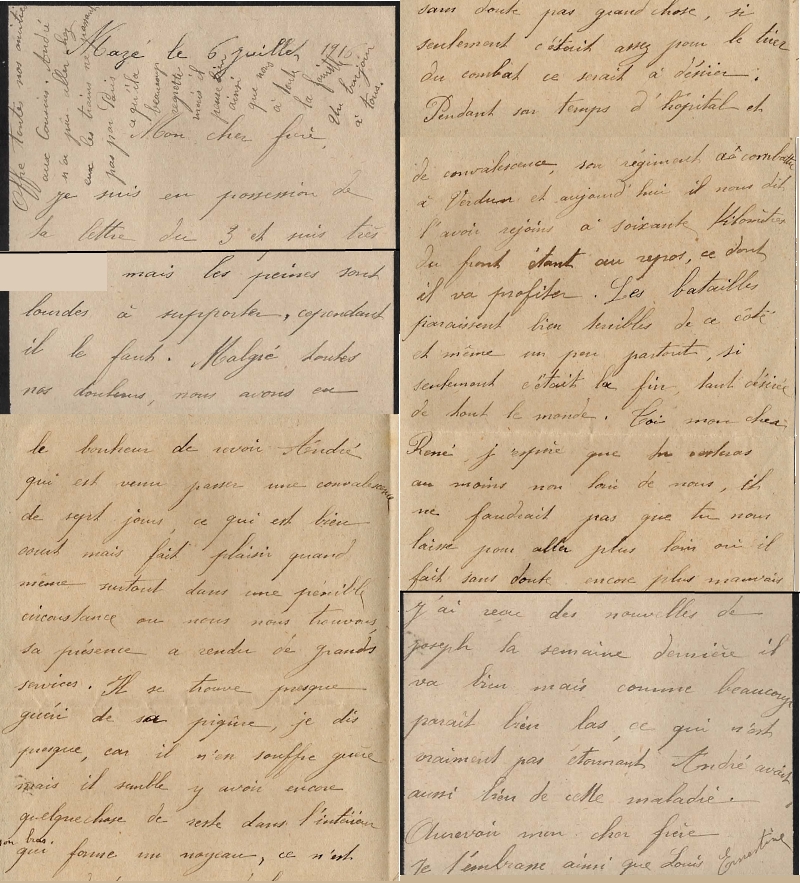 Mazé le 6 juillet 1916
Mon cher frère,
je suis en possession de
la lettre du 3 et suis très
mais les peines sont
lourdes à supporter, cependant
il le faut. Malgré toutes
nos douleurs, nous avons eu
le bonheur de revoir André
qui est venu passer une convalescence
de sept jours, ce qui est bien
court mais fait plaisir quand
même surtout dans une pénible
circonstance ou nous nous trouvons
sa présence a rendu de grands
services. Il se trouve presque
guéri de sa piqûre, je dis
presque, car il n'en souffre guère
mais il semble y avoir encore
quelquechose de reste dans l'intérieur
bras
qui forme un noyeau, ce n'est
sans doute pas grand chose, si
seulement c'était assez pour le tirer
du combat ce serait à désirer.
Pendant son temps d'hôpital et
de convalescence, son régiment a combattu
à Verdun et aujourd'hui il nous dit
l'avoir rejoins à soixante kilomètres
du front étant au repos, ce dont
il va profiter. Les batailles
paraissent bien terribles de ce côté
et même un peu partout, si
seulement c'était la fin, tant désirée
de tout le monde. Toi mon cher
René, j'espère que tu resteras
au moins non loin de nous, il
ne faudrait pas que tu nous
laisse pour aller plus loin où il
fait sans doute encore plus mauvais
j'ai reçu des nouvelles de
joseph la semaine dernière il
va bien mais comme beaucoup
parait bien las, ce qui n'est
vraiment pas étonnant André avait
aussi bien de cette maladie.
Aurevoir mon cher frère
Je t'embrasse ainsi que Louis Ernestine
Offre toutes nos amitiés
aux cousins André
n'a pu aller chez
eux les trains ne passant
pas par Paris
ce qu'il a
beaucoup
regretté
mais il
pense bien
ainsi
que nous
à toute
la famille
Un bonjour
à tous.